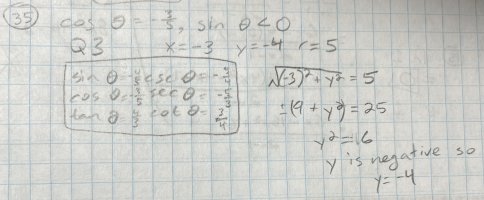 35 cos θ = -3/5, sin θ < 0
Q3 x = -3 y = -4 r = 5
sin θ = csc θ = -
cos θ = sec θ = -
tan θ cot θ = 3/4
√(-3)² + y² = 5
(9 + y²) = 25
y² = 16
y is negative so
y = -4